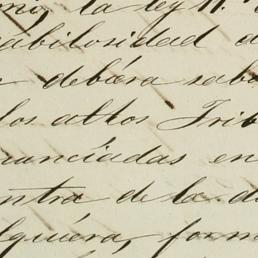 la ley
abilosidad d
debera sab
los altos Trib
unciadas en
ntra de la d
lquiera, form